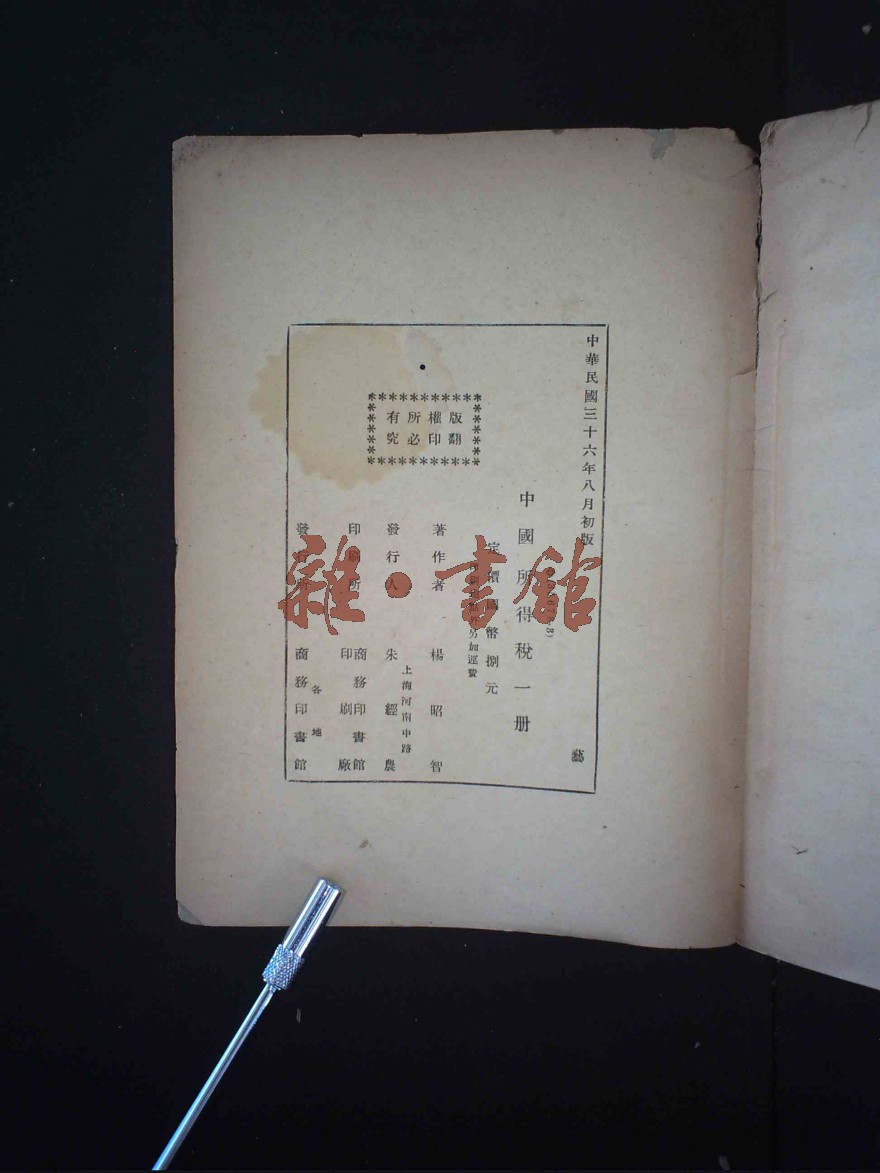 中華民國三十六年八月初版
中國所得稅一册
定價國幣捌元
另加運費
版權所有
翻印必究
著作者 楊昭智
上海河南中路
發行人 朱經農
印刷所 商務印書館
印刷廠
各地
發行所 商務印書館
藝
雜·書館